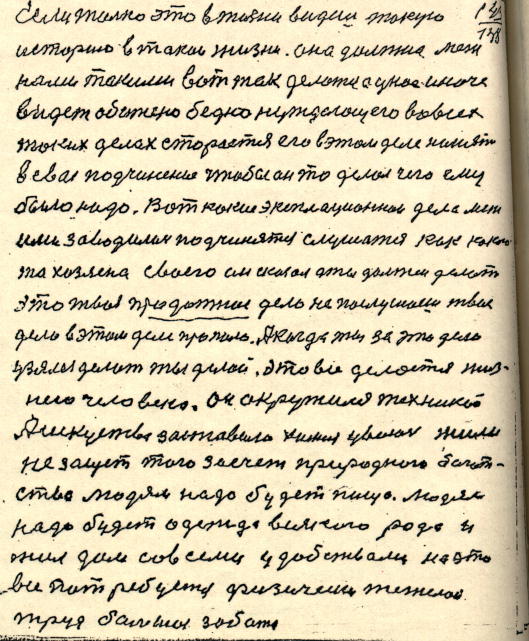 Если только это в жизни видел такую
историю в такой жизни. она должна меж
нами такими вот так делатса умое иначе
видет обижено бедно нуждающего во всех
таких делах старается его в этом деле нанять
в сваё подчинение чтобы он то делал чего ему
было надо. Вот какие эксплационнаи дела меж
ими заводилаи подчинятся слушатся как какого
та хозяена своего он сказал а ты должен делат
это твоё продажнае дело не послушаеш твоё
дело в этом деле пропало. А когда ты за это дело
узялса делат ты делай. это всё делается жиз-
него человека. он окружился техникой
А искуства заставало химия увалах жили
не защет того защет природного багат-
ства людям надо будет пища. людям
надо будет одежда всякого рода и
жил дом со всеми удобствами на это
все потребуется физически тяжолай
труд большая забота